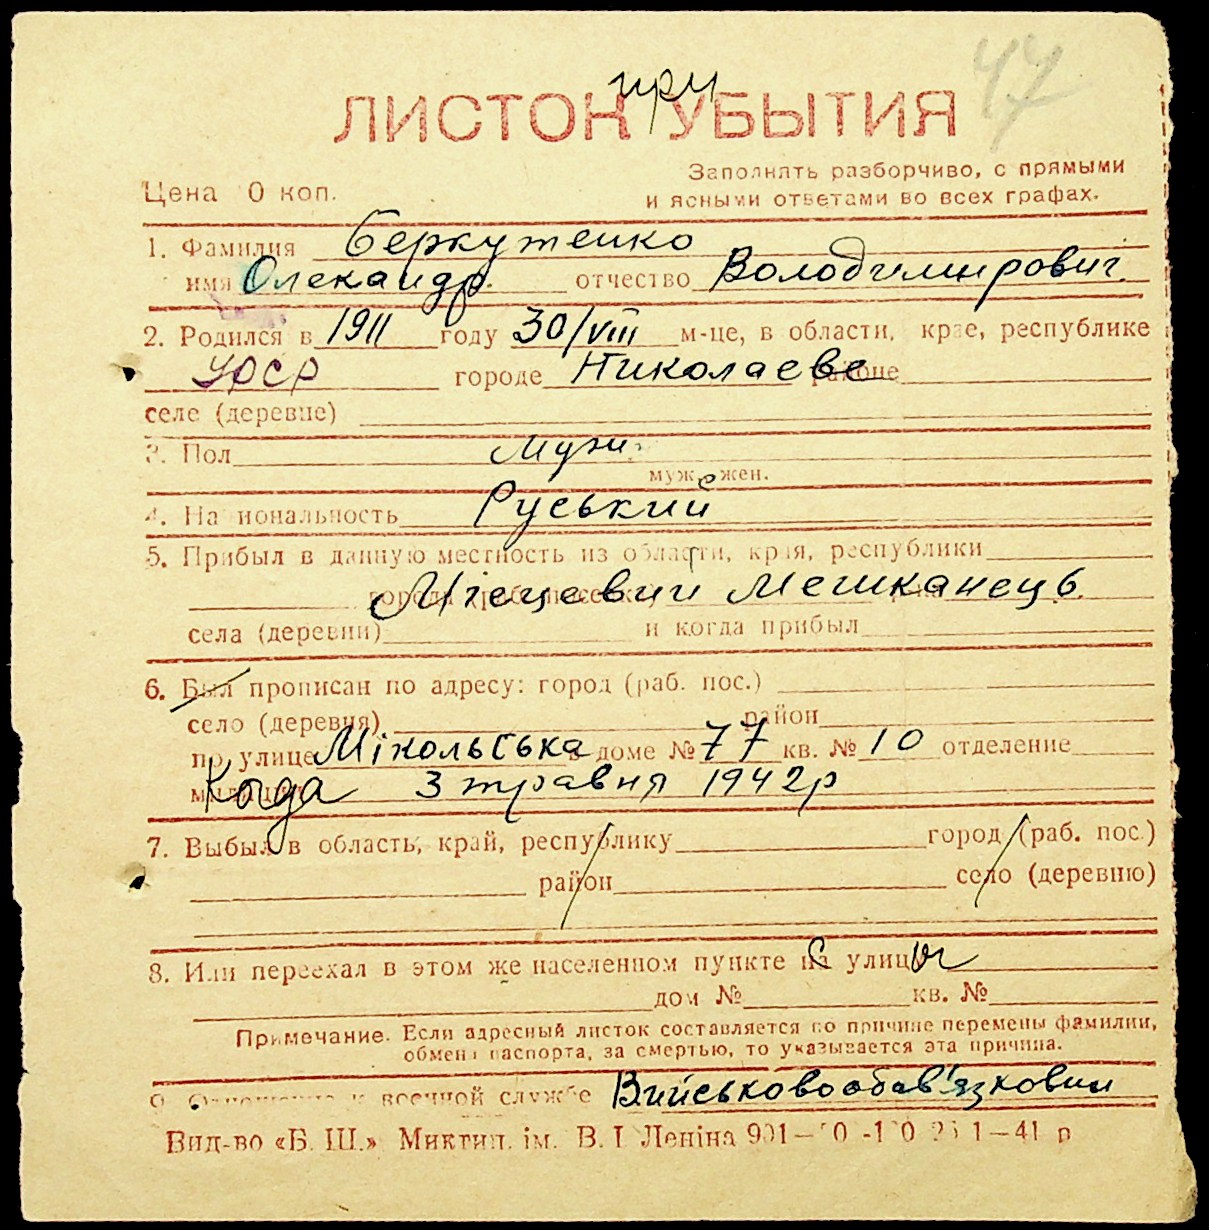 47
при
ЛИСТОК УБЫТИЯ
Заполнять разборчиво, с прямыми
Цена 10 коп. и ясными ответами во всех графах.
1. Фамилия Беркутенко
имя Олександр. отчество Володимирович.
2. Родился в 1911 году 30/VIII м-це, в области, крае, республике
УРСР городе Николаеве районе
селе (деревне)
3. Пол муж.
муж. жен.
4. Национальность Руський
5. Прибыл в данную местность из области, края, республики
города Місцевий Мешканець
села (деревни) и когда прибыл
6. Был прописан по адресу: город (раб. пос.)
село (деревня) район
по улице Мікольська в доме № 77 кв. № 10 отделение
милиции Когда 3 травня 1942р
7. Выбыл в область, край, республику город (раб. пос.)
район село (деревню)
8. Или переехал в этом же населенном пункте с улицы
дом № кв. №
Примечание. Если адресный листок составляется по причине перемены фамилии,
обмена паспорта, за смертью, то указывается эта причина.
9. Отношение к военной службе Військовообов'язковий
Вид-во «Б. Ш.» Миктип. ім. В. І Леніна 1—41 р